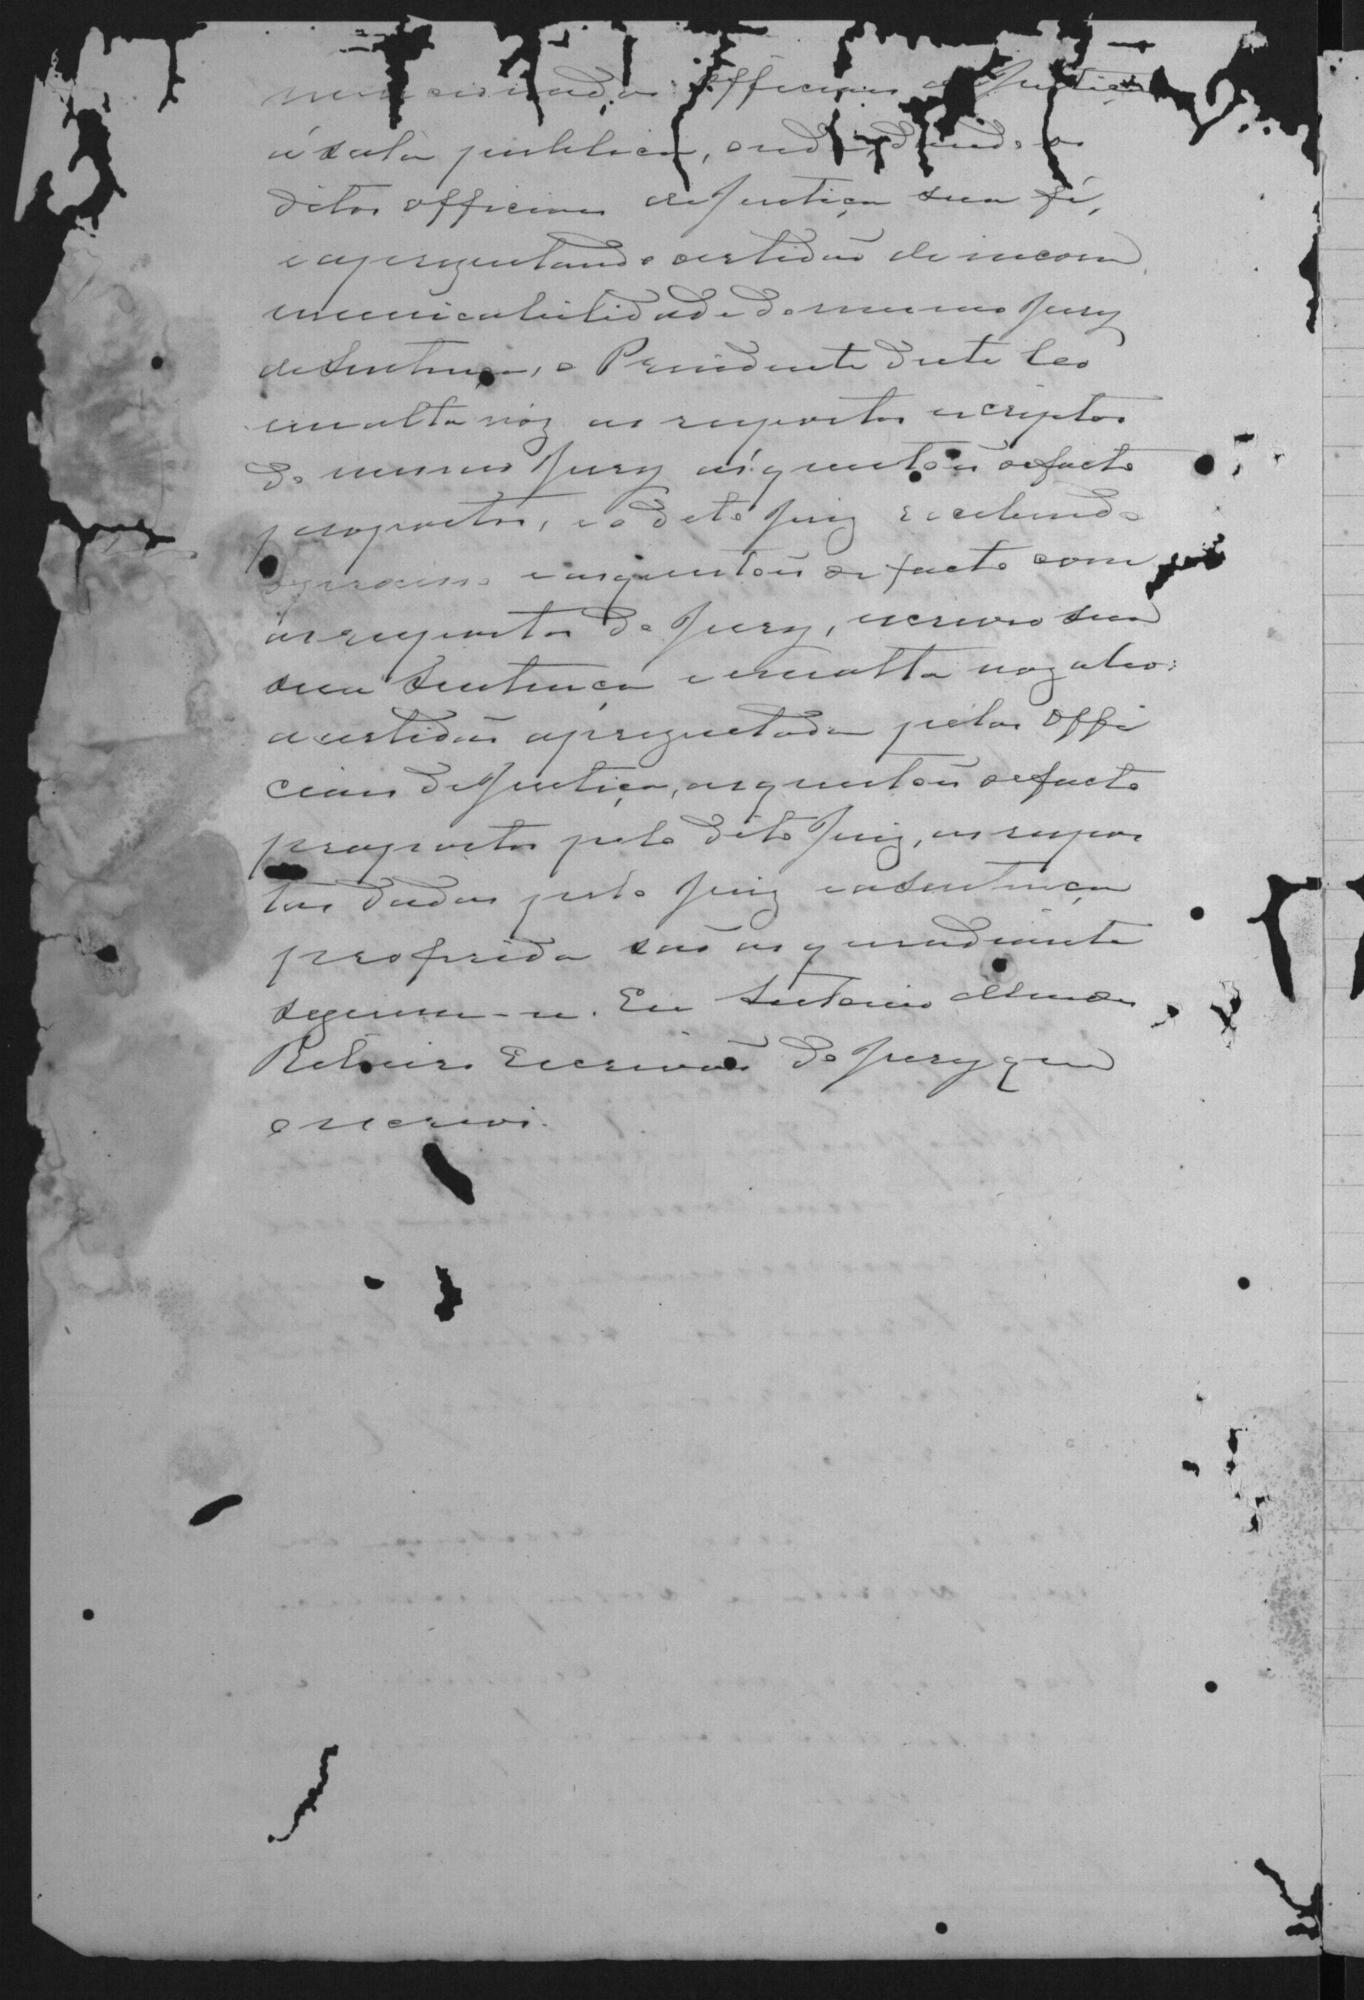 mencionados officiaes de Justiça
á sala publica, onde dando os
ditos officiaes de Justiça sua fé,
e aprezentando certidão de incom
municabilidade do mesmo Jury
de Sentença, o Presidente deste leo
em alta voz as respostas escriptas
do mesmo Jury ás questões de facto
propostas, e o dito Juiz recebendo
o processo e as questões de facto com
as respostas do Jury, escreveo sua
sua Sentença e em alta voz a leo:
a certidão aprezentada pelos Offi
ciaes de Justiça, as questões de facto
propostas pelo dito Juiz, as respos
tas dadas pelo Jury e a Sentença
proferida são as que ao diante
seguem-se. Eu Antonio
Ribeiro Escrivão do Jury que
o escrevi.